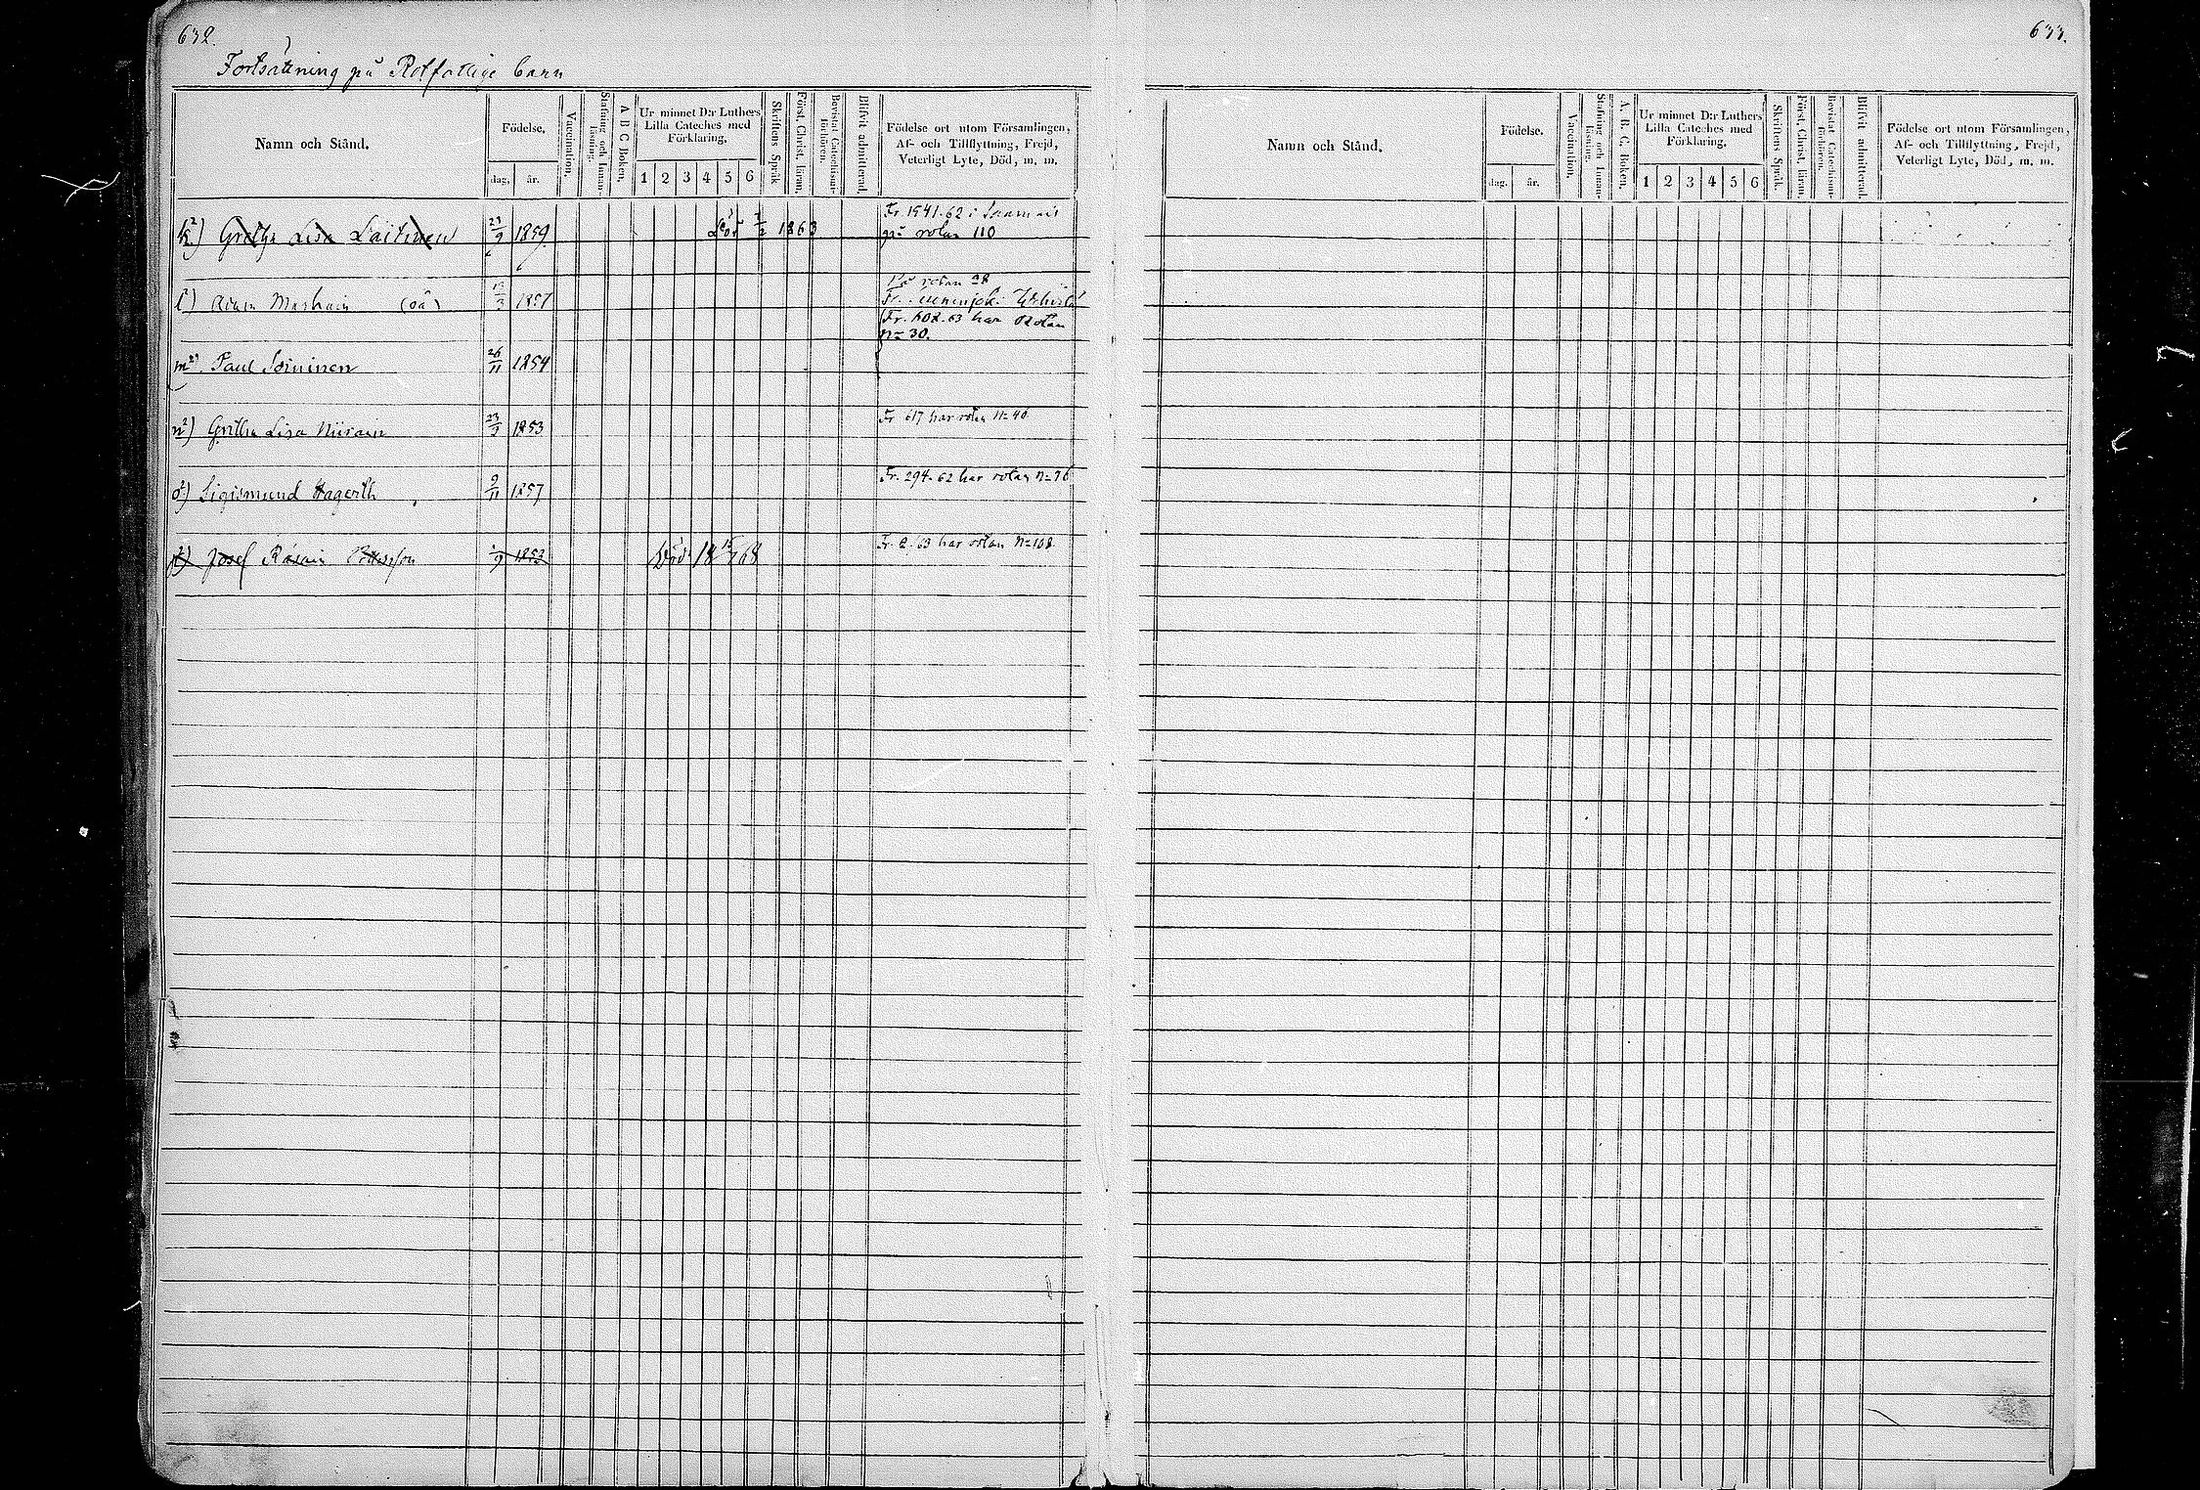 632.
Fortsättning på Rotfattige barn
Namn och Stånd.
Födelse.
dag. år.
Vaccination.
Stafning och Innanläsning.
A B C Boken.
Ur minnet D:r Luthers Lilla Cateches med Förklaring.
1 2 3 4 5 6
Skriftens Språk
Först. Christ. läran.
Bevistat Catechismiförhören.
Blifvit admitterad.
Födelse ort utom Församlingen,
Af- och Tillflyttning, Frejd,
Veterligt Lyte, Död, m. m.
k2) Gretha Lisa Laitinen 23/9 1859 Död 7/2 1863 Fr. 1541-62 i
på rotan 110
l2) Adam (oä) 13/3 1857 På rotan 28
Fr. 602-63 har Rotan
n= 30.
m2) Paul Soininen 26/11 1854
n2) Gretha Lisa Niirain 23/3 1853 Fr 617 har rotan n= 40
o2) Sigismund Hagerth 9/11 1857 Fr. 294-62 har rotan n= 76
p2) Josef Räsain Pettersson /9 1853 Död 18 15/7 68 Fr. 2.63 har rotan n=108
633.
Namn och Stånd.
Födelse.
dag. år.
Vaccination.
Stafning och Innanläsning.
A. B. C. Boken.
Ur minnet D:r Luthers Lilla Cateches med Förklaring.
1 2 3 4 5 6
Skriftens Språk.
Först. Christ. läran.
Bevistat Catechismiförhören.
Blifvit admitterad.
Födelse ort utom Församlingen,
Af- och Tillflyttning, Frejd,
Veterligt Lyte, Död, m. m.